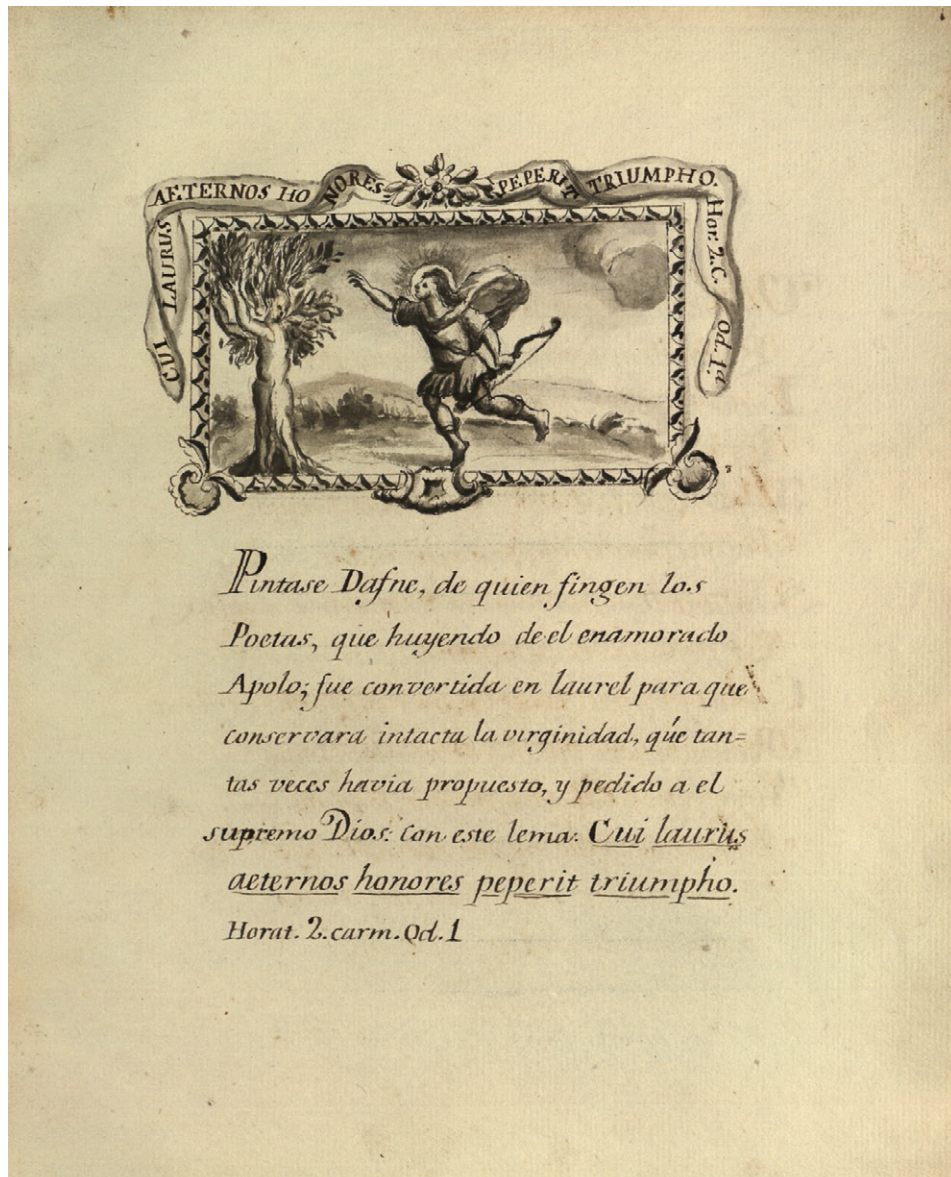 CUI LAURUS AETERNOS HONORES PEPERIT TRIUMPHO. Hor. 2. C. Od. 1a
Pintase Dafne, de quien fingen los
Poetas, que huyendo de el enamorado
Apolo; fue convertida en laurel para que
conservara intacta la virginidad, que tan=
tas veces havia propuesto, y pedido a el
supremo Dios: con este lema: Cui laurus
aeternos honores peperit triumpho.
Horat. 2. carm. Od. 1